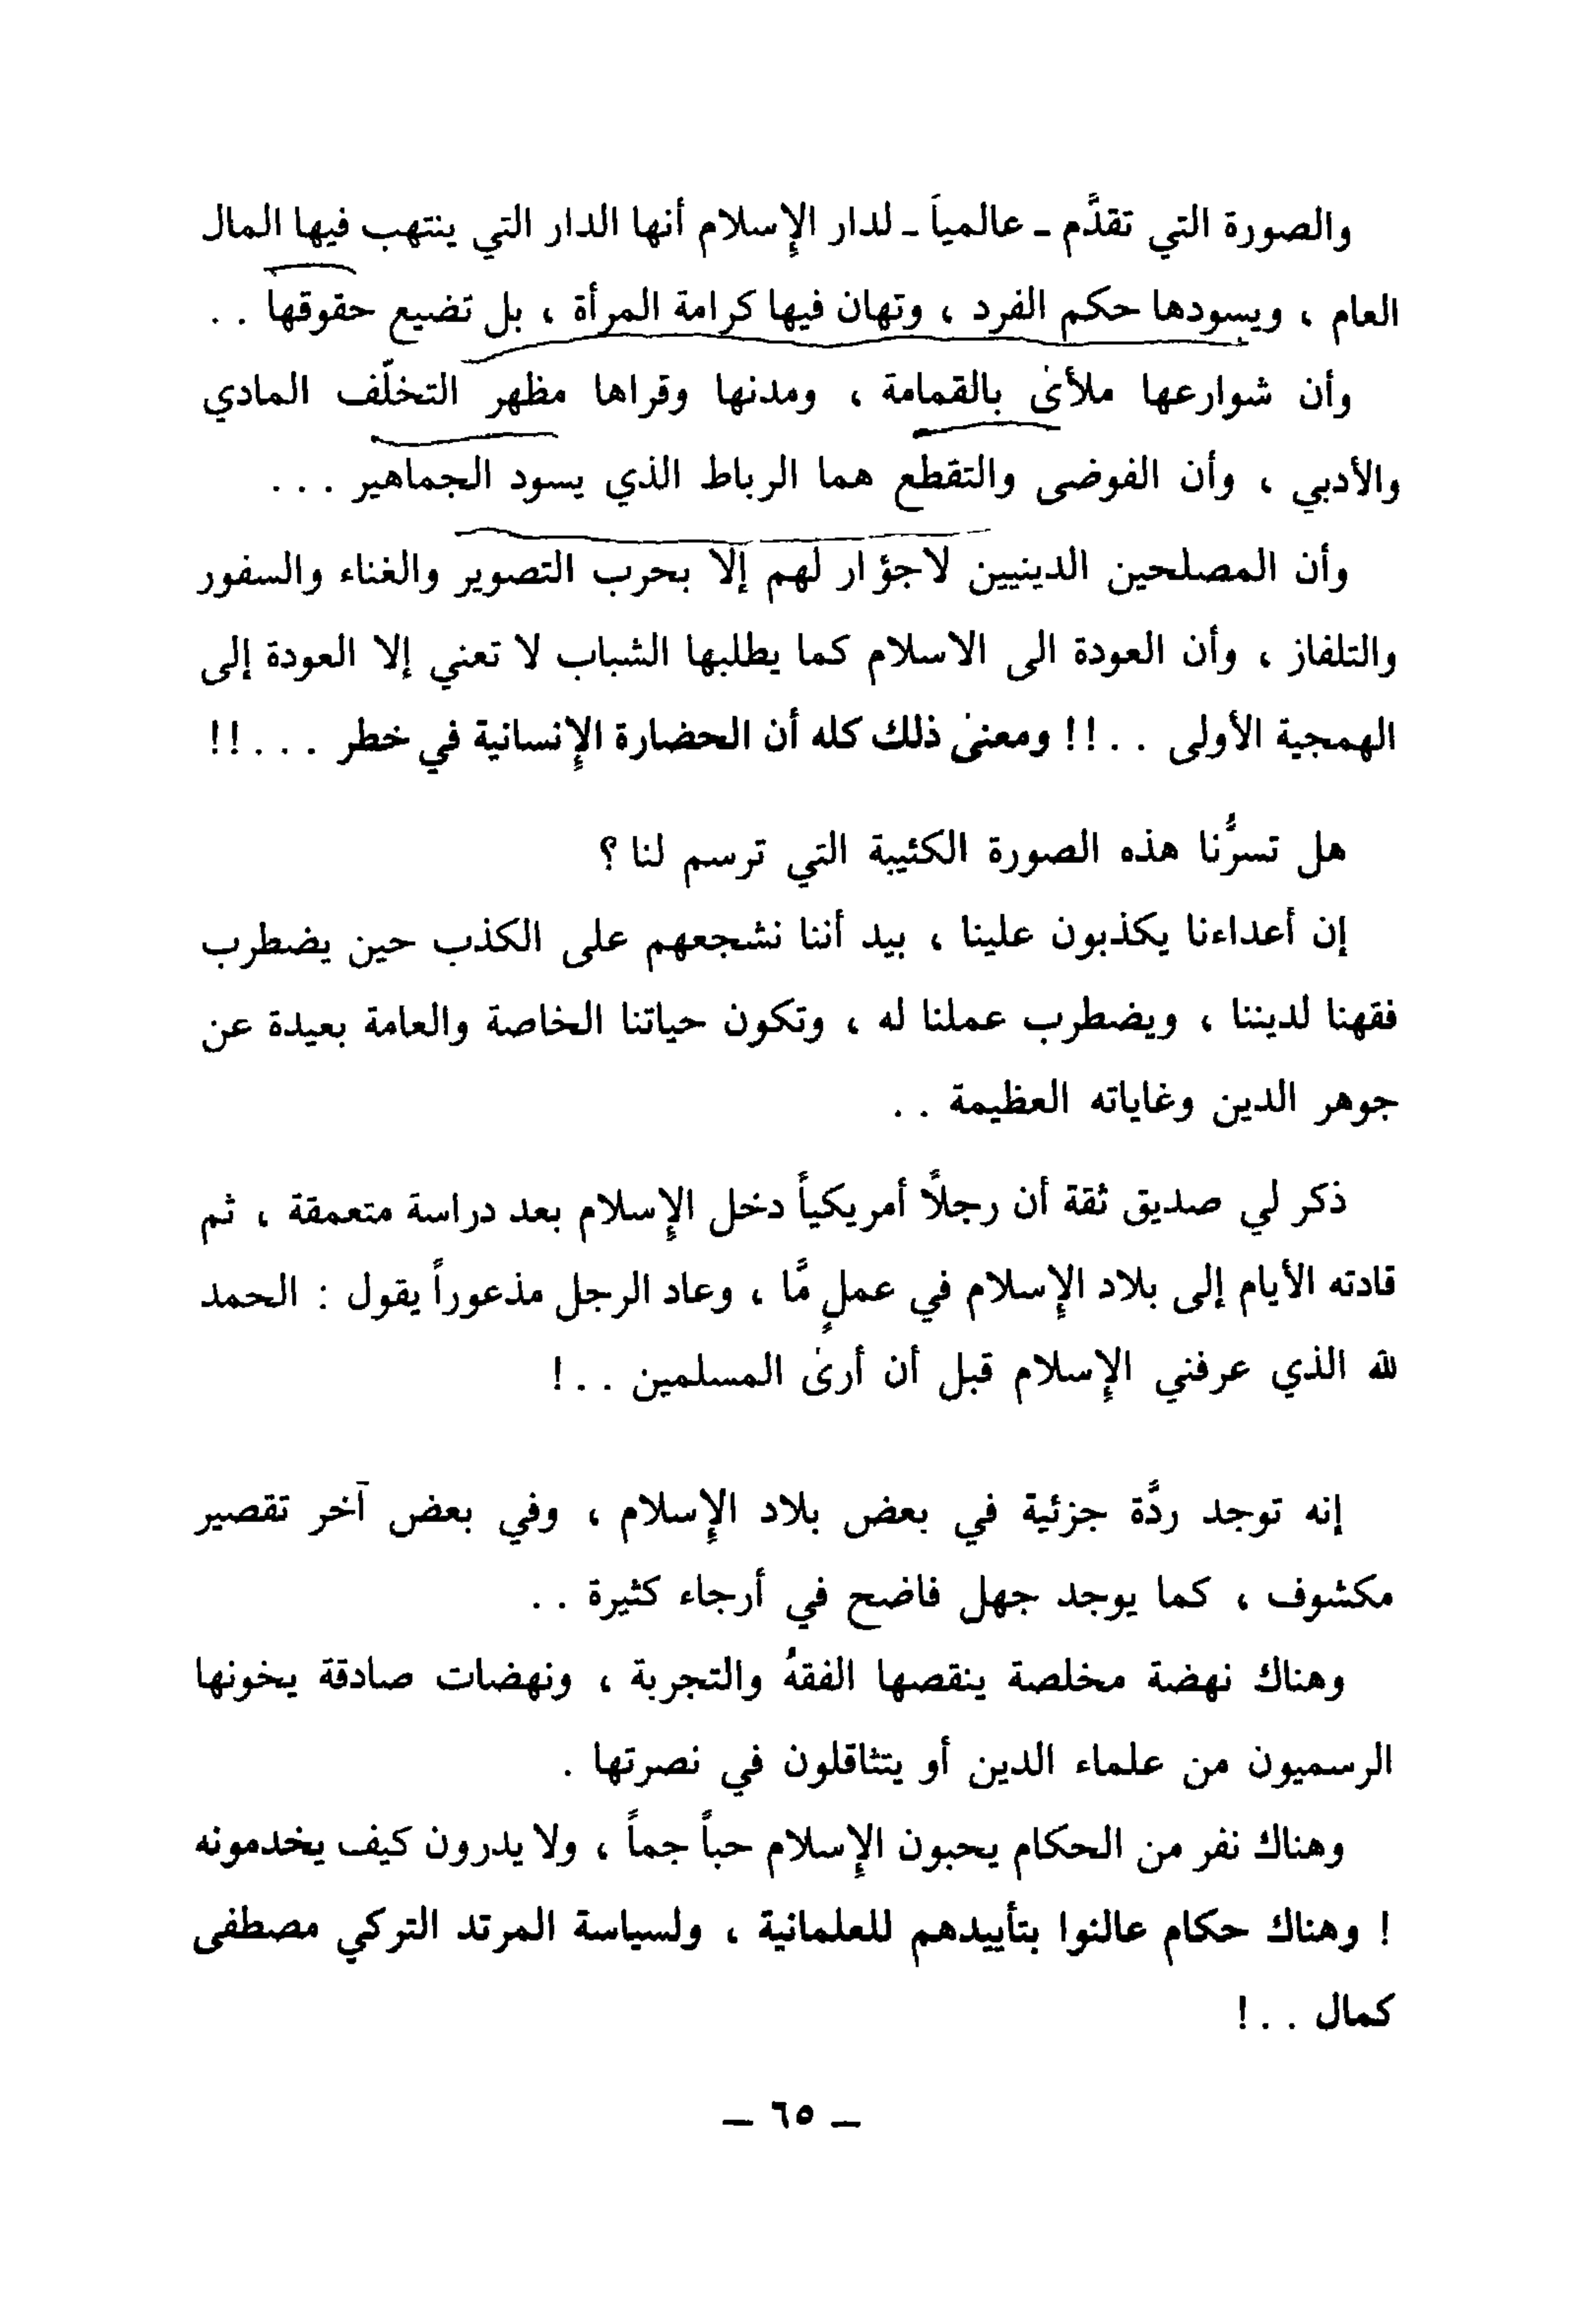 والصورة التي تقدَّم ـ عالمياً ـ لدار الإسلام أنها الدار التي ينتهب فيها المال
العام ، ويسودها حكم الفرد ، وتهان فيها كرامة المرأة ، بل تضيع حقوقها . .
وأن شوارعها ملأىٰ بالقمامة ، ومدنها وقراها مظهر التخلّف المادي
والأدبي ، وأن الفوضى والتقطع هما الرباط الذي يسود الجماهير . . .
وأن المصلحين الدينيين لاجؤار لهم إلا بحرب التصوير والغناء والسفور
والتلفاز ، وأن العودة الى الاسلام كما يطلبها الشباب لا تعني إلا العودة إلى
الهمجية الأولى . . !! ومعنىٰ ذلك كله أن الحضارة الإنسانية في خطر . . . !!
هل تسرُّنا هذه الصورة الكئيبة التي ترسم لنا ؟
إن أعداءنا يكذبون علينا ، بيد أننا نشجعهم على الكذب حين يضطرب
فقهنا لديننا ، ويضطرب عملنا له ، وتكون حياتنا الخاصة والعامة بعيدة عن
جوهر الدين وغاياته العظيمة . .
ذكر لي صديق ثقة أن رجلًا أمريكياً دخل الإسلام بعد دراسة متعمقة ، ثم
قادته الأيام إلى بلاد الإسلام في عملٍ مًّا ، وعاد الرجل مذعوراً يقول : الحمد
لله الذي عرفني الإسلام قبل أن أرىٰ المسلمين . . !
إنه توجد ردَّة جزئية في بعض بلاد الإسلام ، وفي بعض آخر تقصير
مكشوف ، كما يوجد جهل فاضح في أرجاء كثيرة . .
وهناك نهضة مخلصة ينقصها الفقهُ والتجربة ، ونهضات صادقة يخونها
الرسميون من علماء الدين أو يتثاقلون في نصرتها .
وهناك نفر من الحكام يحبون الإسلام حباً جماً ، ولا يدرون كيف يخدمونه
! وهناك حكام عالنوا بتأييدهم للعلمانية ، ولسياسة المرتد التركي مصطفى
كمال . . !
– ٦٥ –